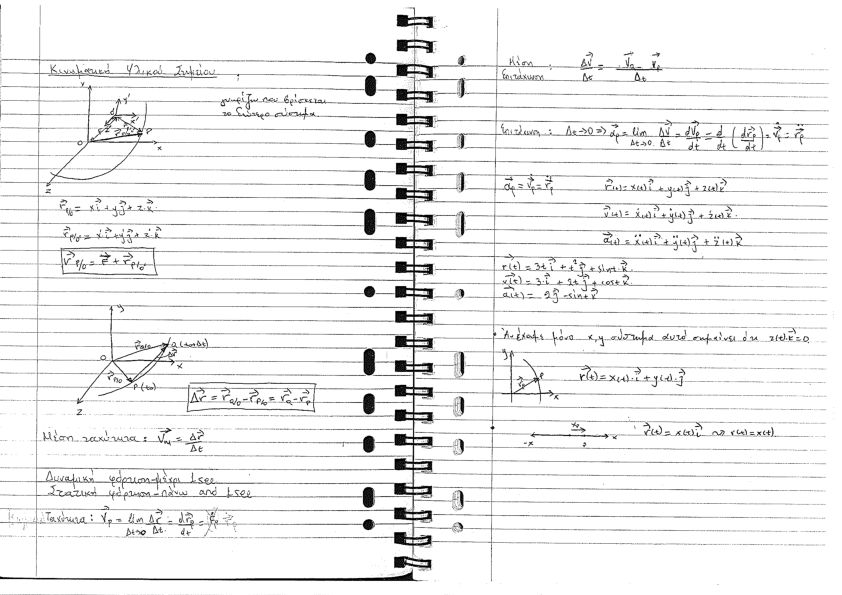 Κινηματική Υλικού Σημείου
γνωρίζω που βρίσκεται
το δεύτερο σύστημα
y
y'
P
O
x
z
r⃗p/o = x i⃗ + y j⃗ + z·k⃗
r⃗̇p/o = ẋ i⃗ + ẏ j⃗ + ż·k⃗
y
O
r⃗a/o
a (to+Δt)
Δr⃗
x
r⃗p/o
P (to)
z
Δr⃗ = r⃗a/o - r⃗p/o = r⃗a - r⃗p
Μέση ταχύτητα: V⃗μ = Δr⃗/Δt
Δυναμική φόρτιση - μέχρι 1sec
Στατική φόρτιση - πάνω από 1sec
Ταχύτητα: V⃗p = lim Δt→0 Δr⃗/Δt = dr⃗p/dt =
Μέση Επιτάχυνση : ΔV⃗/Δt = V⃗a - V⃗p / Δt
Επιτάχυνση: Δt→0 => a⃗p = lim Δt→0 ΔV⃗/Δt = dV⃗p/dt = d/dt (dr⃗p/dt) = V⃗̇p = r⃗̈p
a⃗p = V⃗̇p = r⃗̈p
r⃗(t) = x(t) i⃗ + y(t) j⃗ + z(t) k⃗
v⃗(t) = ẋ(t) i⃗ + ẏ(t) j⃗ + ż(t) k⃗
a⃗(t) = ẍ(t) i⃗ + ÿ(t) j⃗ + z̈(t) k⃗
r⃗(t) = 3t i⃗ + t² j⃗ + sint·k⃗
v⃗(t) = 3·i⃗ + 2t j⃗ + cost k⃗
a⃗(t) = 2 j⃗ - sint k⃗
• Αν έχουμε μόνο x, y σύστημα αυτό σημαίνει ότι z(t)·k⃗ = 0
y
P
x
r⃗(t) = x(t)·i⃗ + y(t)·j⃗
-x
x
r⃗(t) = x(t) i⃗ ~> r(t) = x(t)